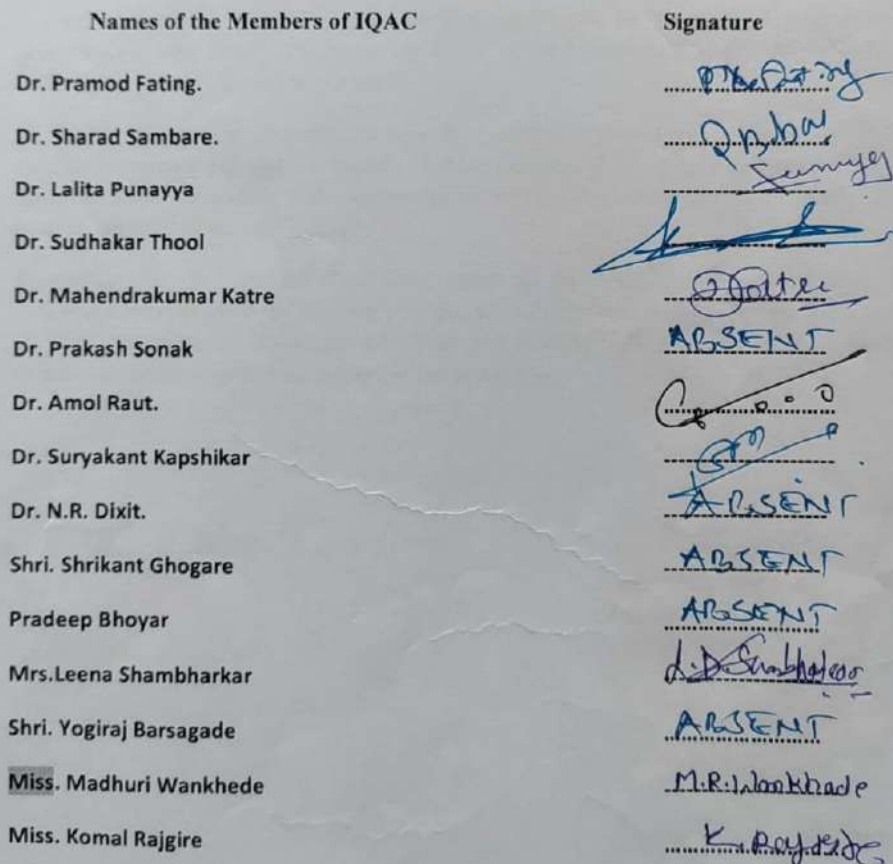 Names of the Members of IQAC Signature
Dr. Pramod Fating.
Dr. Sharad Sambare.
Dr. Lalita Punayya
Dr. Sudhakar Thool
Dr. Mahendrakumar Katre
Dr. Prakash Sonak ABSENT
Dr. Amol Raut.
Dr. Suryakant Kapshikar
Dr. N.R. Dixit. ABSENT
Shri. Shrikant Ghogare ABSENT
Pradeep Bhoyar ABSENT
Mrs.Leena Shambharkar
Shri. Yogiraj Barsagade ABSENT
Miss. Madhuri Wankhede M.R.Wankhade
Miss. Komal Rajgire